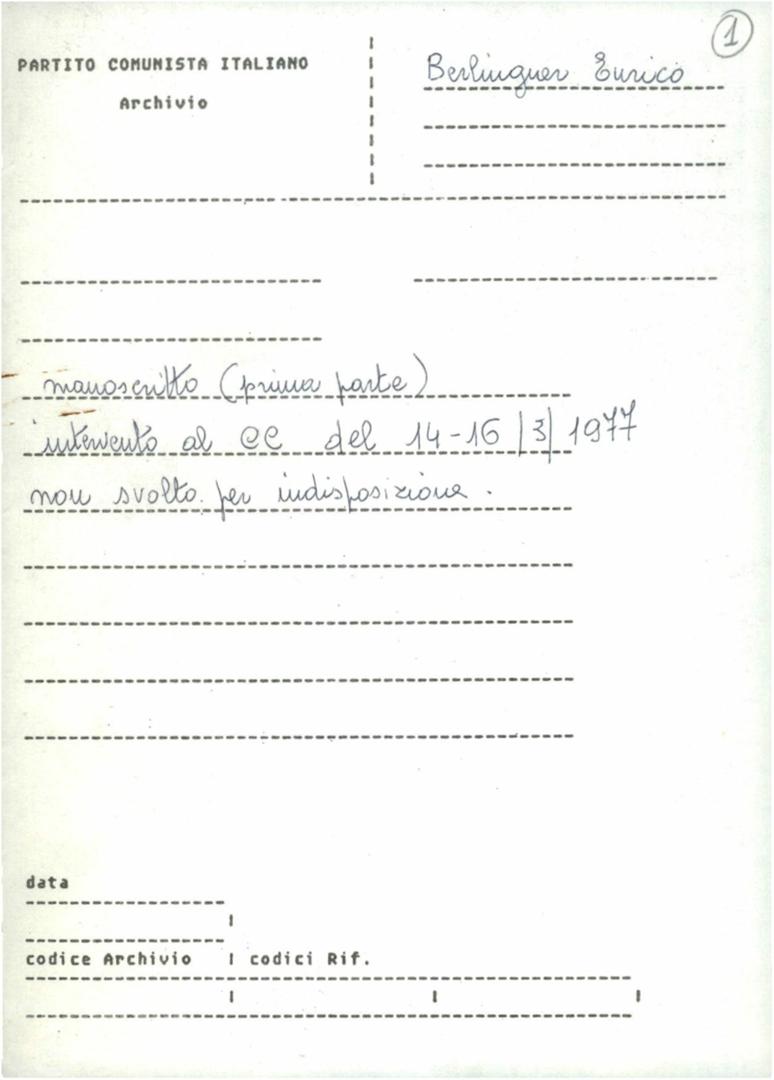 1
PARTITO COMUNISTA ITALIANO
Archivio
Berlinguer Enrico
manoscritto (prima parte)
intervento al CC del 14-16/3/1977
non svolto per indisposizione.
data
codice Archivio
codici Rif.